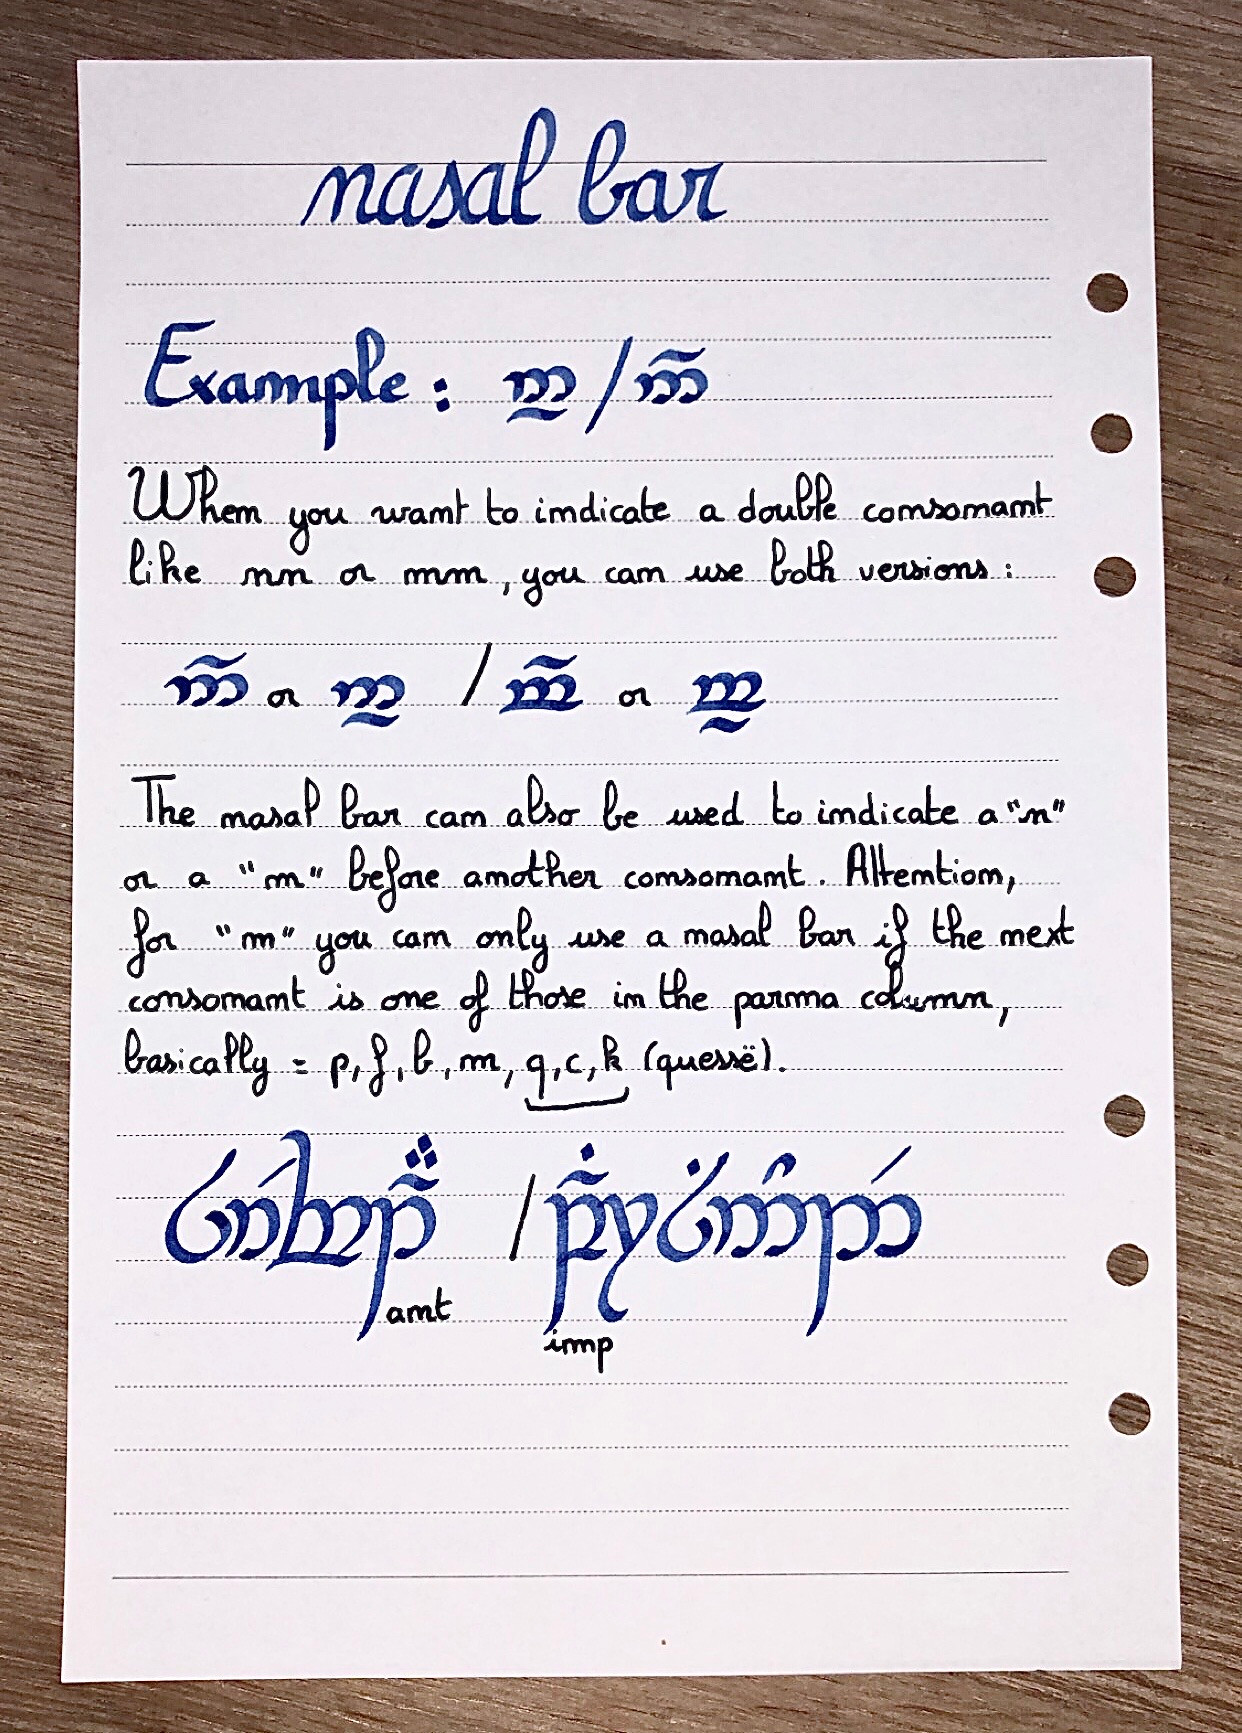 nasal bar
Example : /
When you want to indicate a double consonant
like nn or mm, you can use both versions :
or / or
The nasal bar can also be used to indicate a "n"
or a "m" before another consonant. Attention,
for "m" you can only use a nasal bar if the next
consonant is one of those in the parma column,
basically = p, f, b, m, q, c, k (quessë).
/
ant
imp